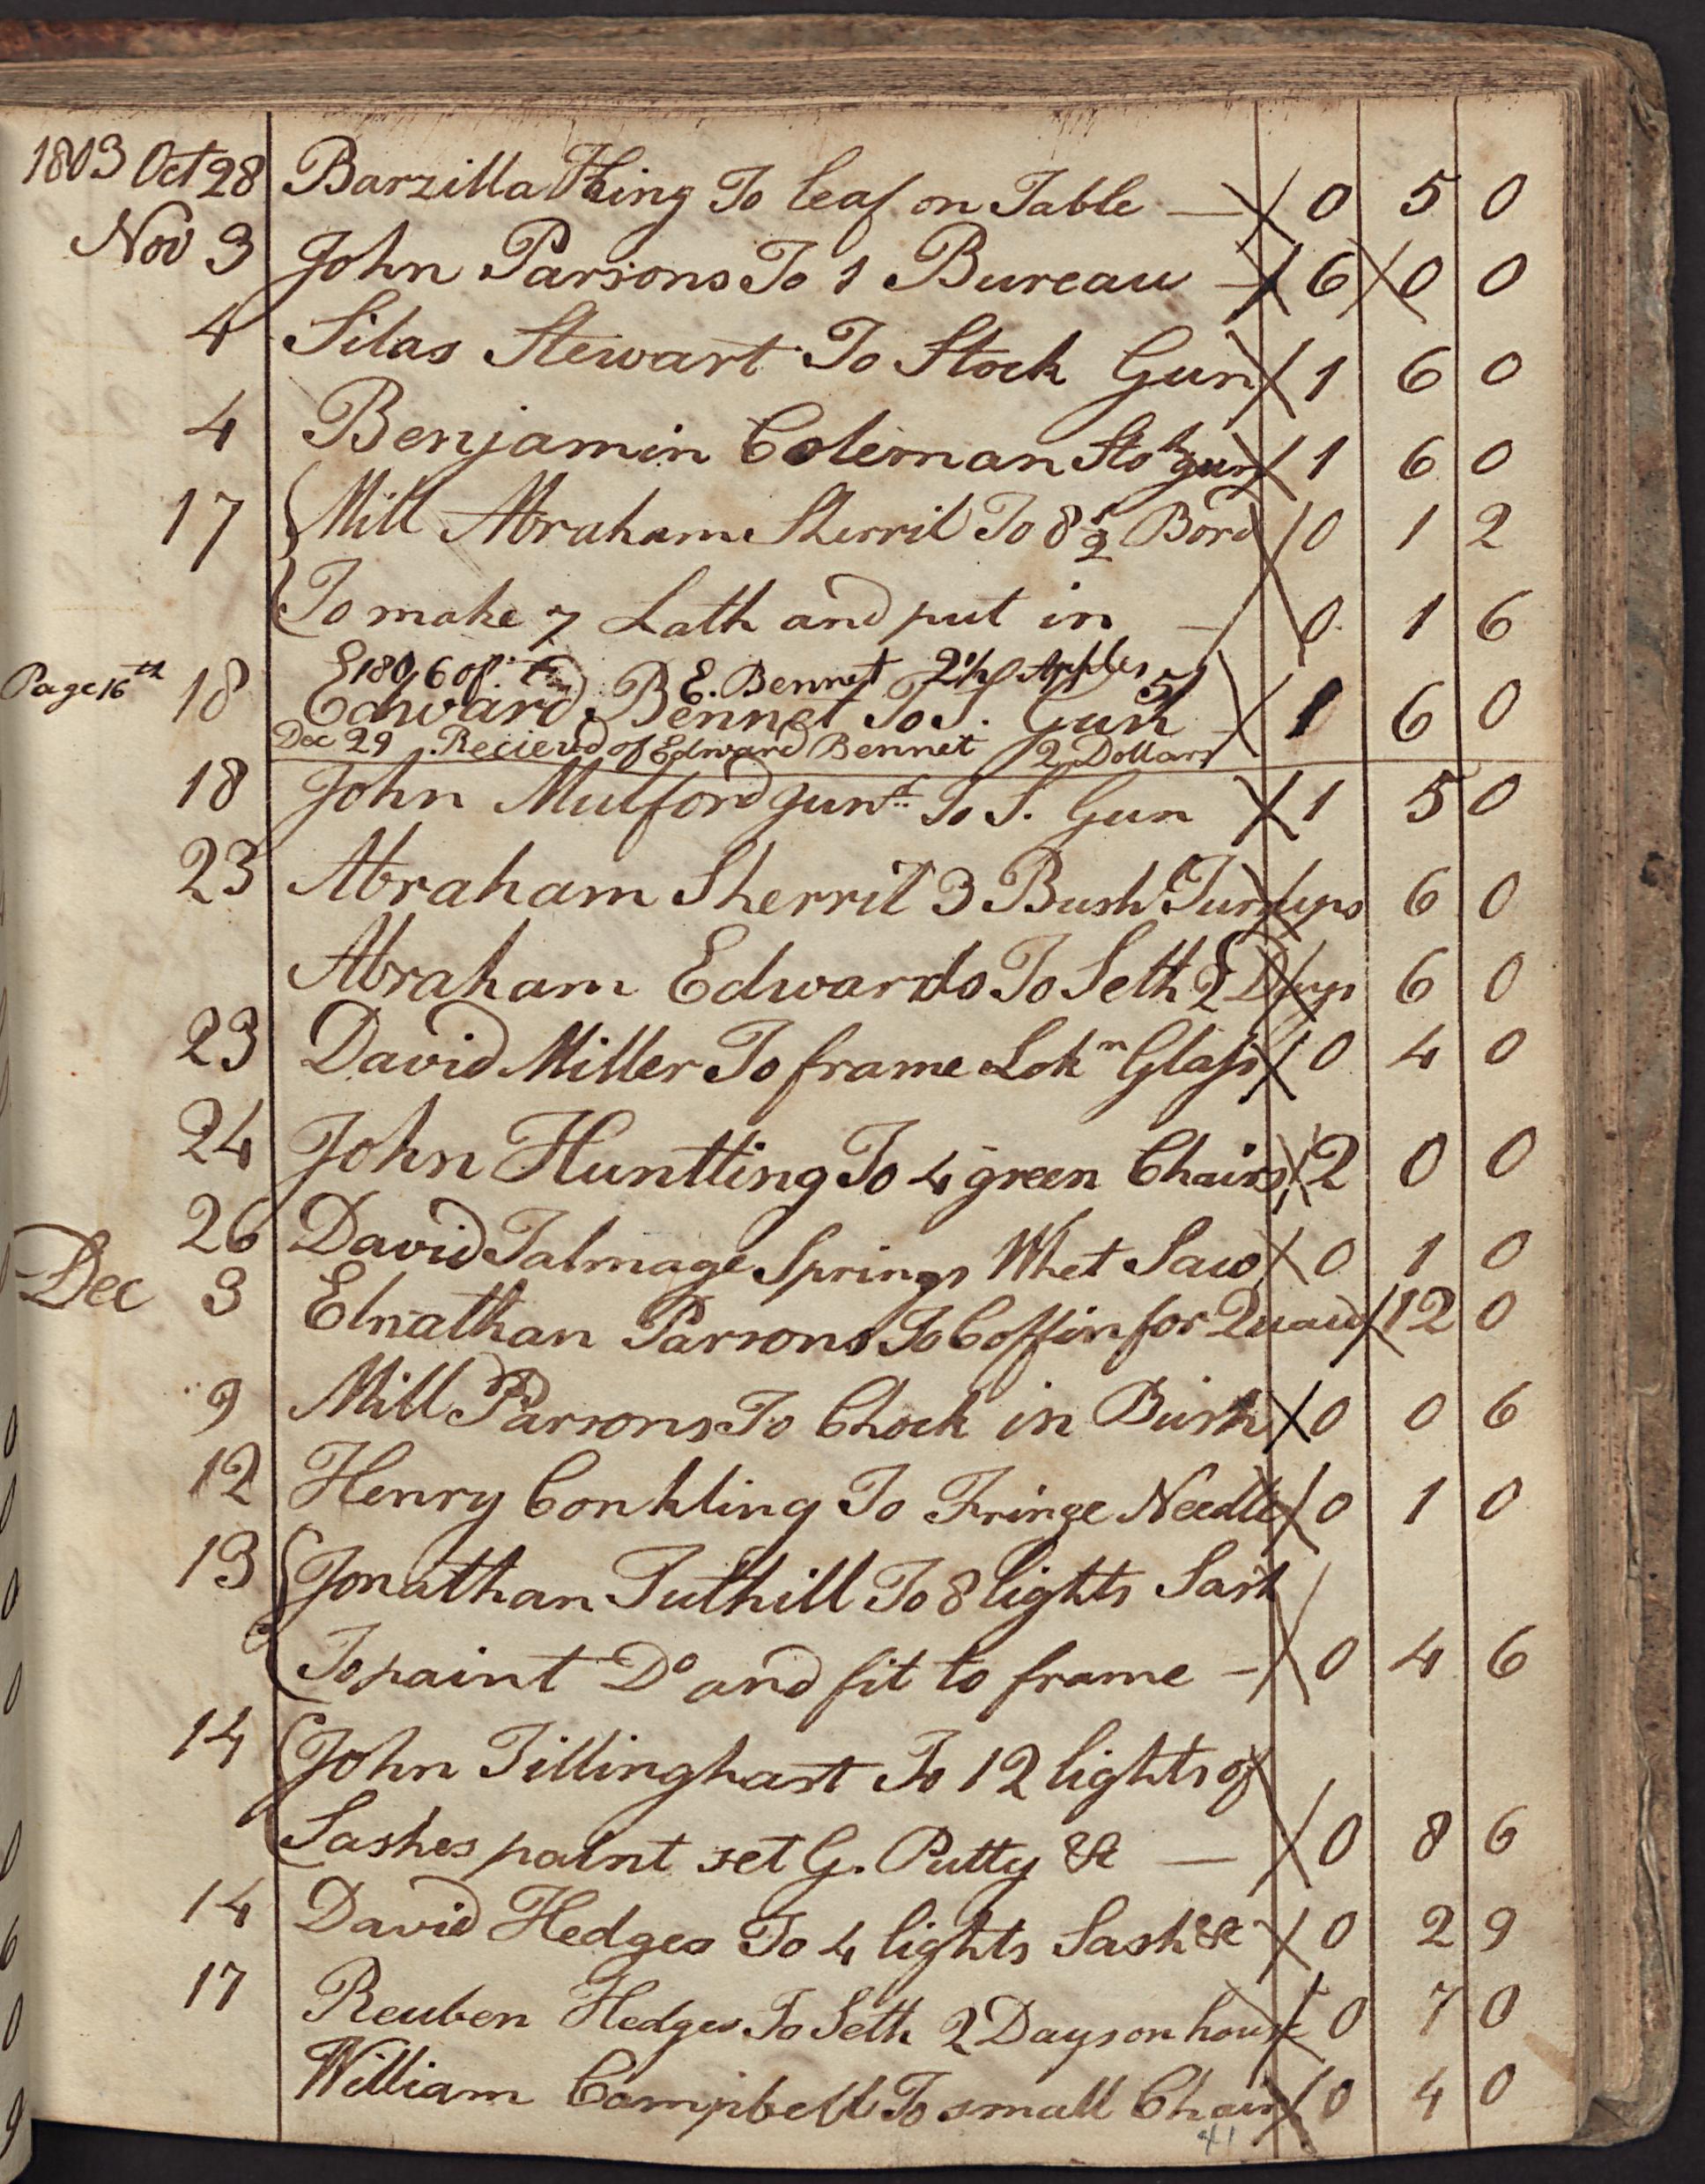 1803 Oct 28 Barzilla King To leaf on Table — 0 5 0
Nov 3 John Parsons To 1 Bureau — 6 0 0
4 Silas Stewart To Stock Gun 1 6 0
4 Benjamin Coleman Stok gun 1 6 0
17 Mill Abraham Sherril To 8 1/2 Bord 0 1 2
To make 7 Lath and put in — 0 1 6
1806 of E. Bennet 2 Apples 5/
Page 16th 18 Edward Bennet To S. Gun 1 6 0
Dec 29 Recieved of Edward Bennet 2 Dollars
18 John Mulford junr To S. Gun 1 5 0
23 Abraham Sherril 3 Bush Turnups 6 0
Abraham Edwards To Seth 2 Days 6 0
23 David Miller To frame Lokn Glass 0 4 0
24 John Huntting To 4 green Chairs 2 0 0
26 David Talmage Springs Whet Saw 0 1 0
Dec 3 Elnathan Parsons To Coffin for Quaw 12 0
9 Mill Parsons To Chock in Bush 0 0 6
12 Henry Conkling To Fringe Needle 0 1 0
13 Jonathan Tuthill To 8 lights Sash
To paint Do and fit to frame — 0 4 6
14 John Tillinghast To 12 lights of
Sashes paint set G. Putty &c — 0 8 6
14 David Hedges To 4 lights Sash &c 0 2 9
17 Reuben Hedges To Seth 2 Days on house 0 7 0
William Campbell To small Chair 0 4 0
41